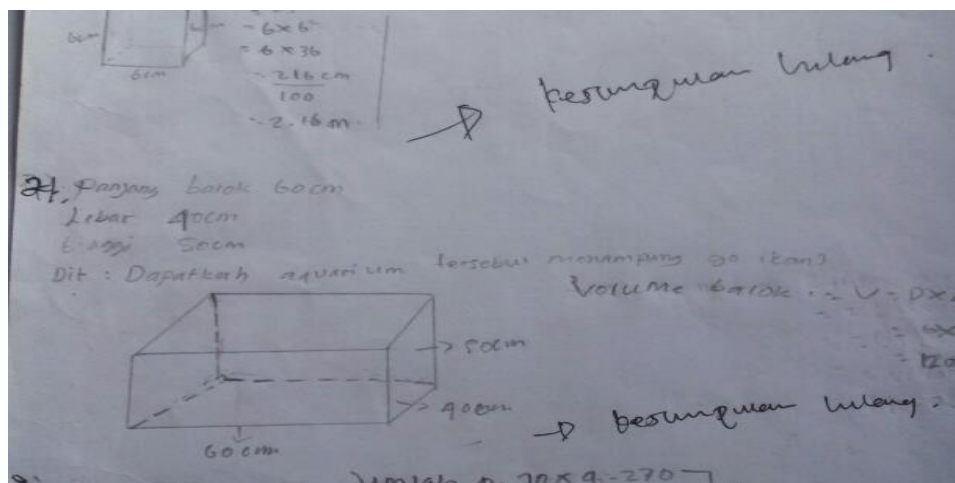 = 6 x 6²
6cm
= 6 x 36
6cm
= 216 cm
100
= 2.16 m.
kesimpulan hilang.
21. Panjang balok 60cm
Lebar 40cm
tinggi 50cm
Dit : Dapatkah aquarium tersebut menampung 90 ikan?
Volume balok = V = p x
= 120
50cm
40cm
kesimpulan hilang.
60 cm